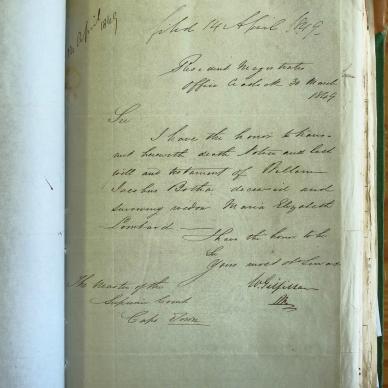 14 April 1849
filed 14 April 1849.
Resident Magistrates
Office Cradock 30 March
1849
Sir
I have the honor to trans-
mit herewith death Notice and last
will and testament of Willem
Jacobus Botha deceased and
surviving widow Maria Elizabeth
Lombard
I have the honor to be
Sir
Your most ob Servant
W Gilfillan
The Master of the
Supreme Court
Cape Town